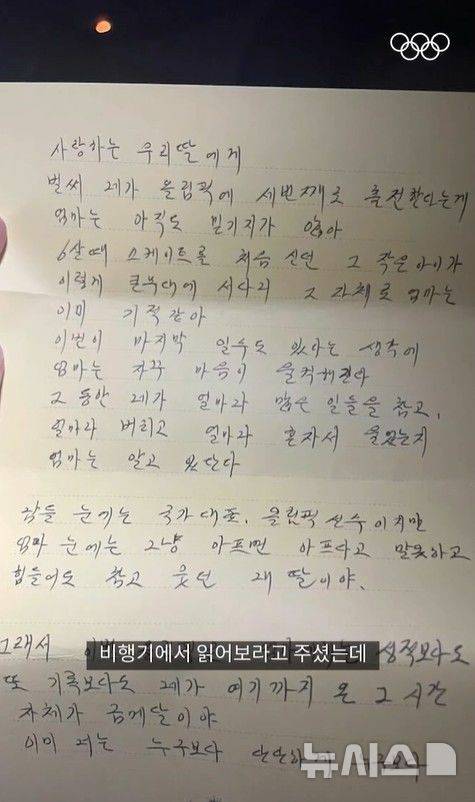 사랑하는 우리딸에게
벌써 네가 올림픽에 세번째로 출전한다는게
엄마는 아직도 믿기지가 않아
6살때 스케이트를 처음 신던 그 작은아이가
이렇게 큰무대에 서다니 그 자체로 엄마는
이미 기적같아
이번이 마지막 일수도 있다는 생각에
엄마는 자꾸 마음이 울컥해진다
그 동안 네가 얼마나 많은 일들을 참고,
얼마나 버티고 얼마나 혼자서 울었는지
엄마는 알고 있단다
남들 눈에는 국가대표, 올림픽 선수이지만
엄마 눈에는 그냥 아프면 아프다고 말못하고
힘들어도 참고 웃던 내 딸이야.
그래서 성적보다도
비행기에서 읽어보라고 주셨는데
또 기록보다도 네가 여기까지 온 그 시간
자체가 금메달이야
이미 너는 누구보다 단단하
뉴시스